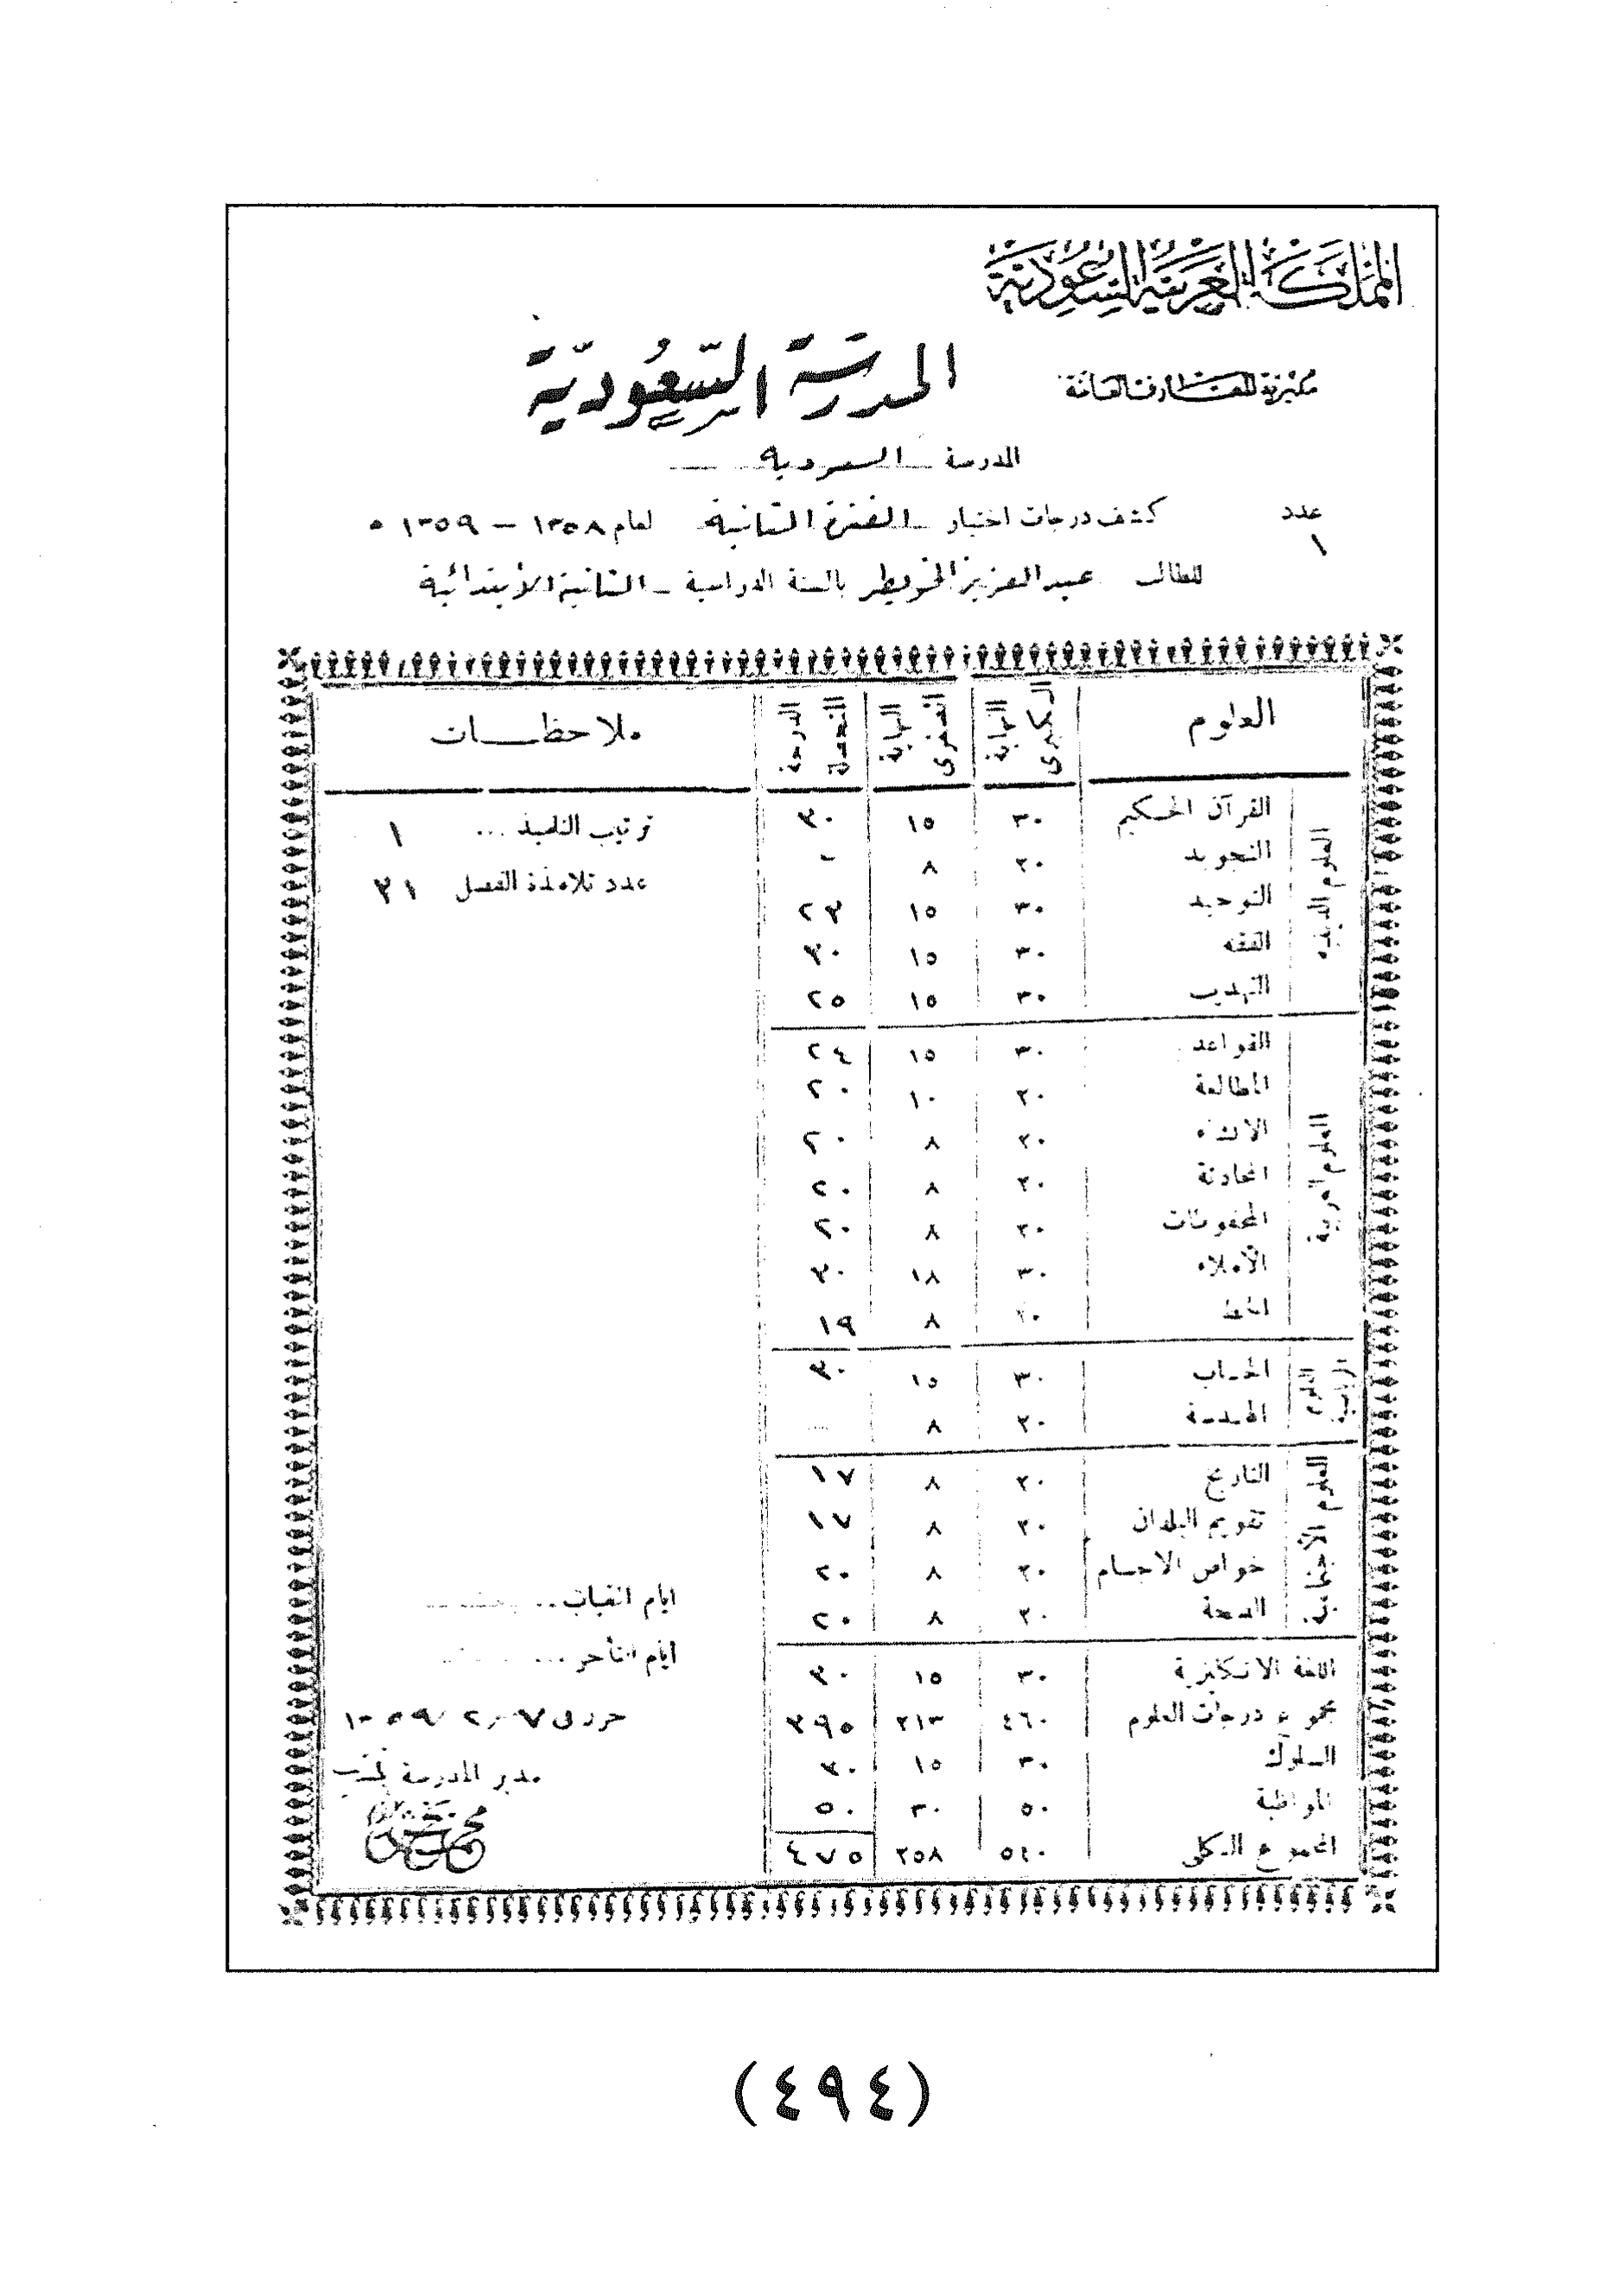 المملكة العربية السعودية
مديرية المعارف العامة
المدرسة السعودية
المدرسة السعودية
عدد ١
كشف درجات اختبار الفترة الثانية لعام ١٣٥٨ – ١٣٥٩ ه
للطالب عبد العزيز الخويطر بالسنة الدراسية الثانية الأبتدائية
العلوم النهاية الكبرى النهاية الصغرى الدرجة ملاحظات
العلوم الدينية
القرآن الحكيم ٣٠ ١٥ ٣٠
التجويد ٢٠ ٨ -
التوحيد ٣٠ ١٥ ٢٣
الفقه ٣٠ ١٥ ٣٠
التهذيب ٣٠ ١٥ ٢٥
العلوم العربية
القواعد ٣٠ ١٥ ٢٤
المطالعة ٢٠ ١٠ ٢٠
الانشاء ٢٠ ٨ ٢٠
المحادثة ٢٠ ٨ ٢٠
المحفوظات ٢٠ ٨ ٢٠
الأملاء ٣٠ ١٨ ٣٠
الخط ٢٠ ٨ ١٩
العلوم الرياضية
الحساب ٣٠ ١٥ ٣٠
الهندسة ٢٠ ٨
العلوم الأجتماعية
التاريخ ٢٠ ٨ ١٧
تقويم البلدان ٢٠ ٨ ١٧
خواص الاجسام ٢٠ ٨ ٢٠
الصحة ٢٠ ٨ ٢٠
اللغة الانكليزية ٣٠ ١٥ ٣٠
مجموع درجات العلوم ٤٦٠ ٢١٣ ٣٩٥
السلوك ٣٠ ١٥ ٣٠
المواظبة ٥٠ ٣٠ ٥٠
المجموع الكلي ٥٤٠ ٢٥٨ ٤٧٥
ترتيب التلميذ ... ١
عدد تلامذة الفصل ٣١
ايام الغياب ..
ايام التأخر ...
حرر في
مدير المدرسة
(٤٩٤)